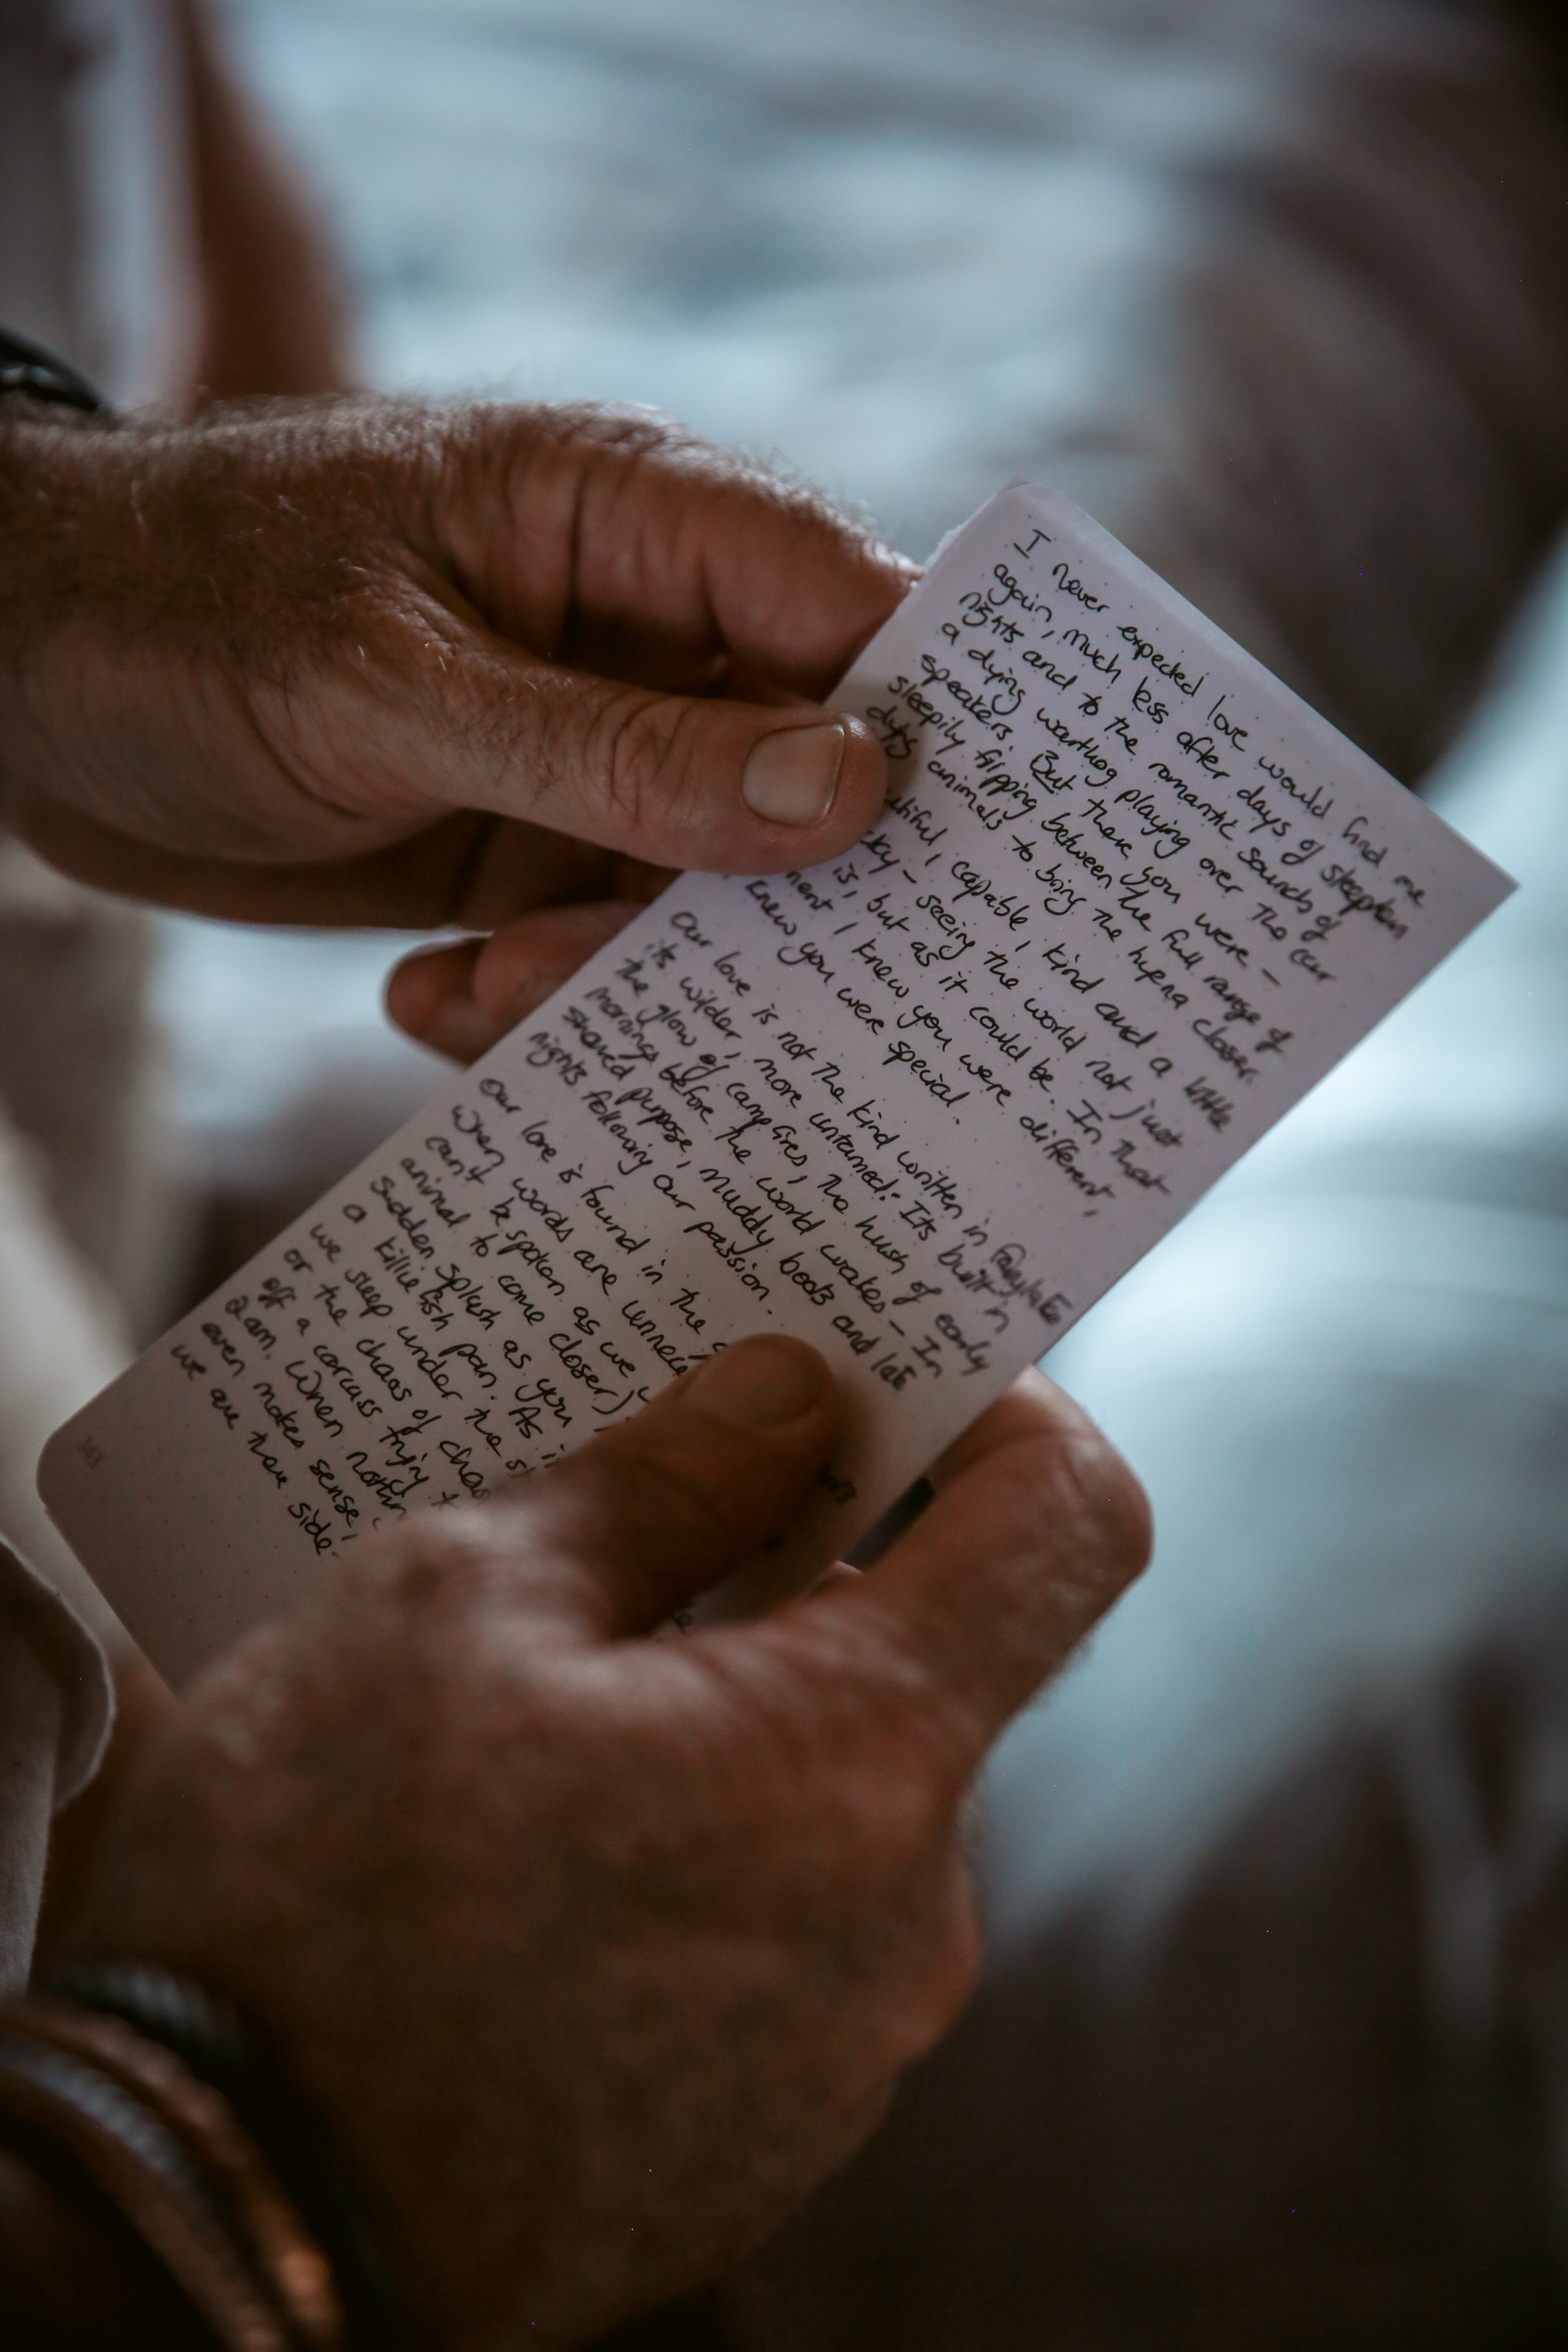 I never expected love would find me
again, much less after days of sleepless
nights and to the romantic sounds of
a dying warthog playing over the car
speakers. But there you were –
sleepily flipping between the full range of
dying animals to bring the hyena closer.
capable, kind and a little
– seeing the world not just
is, but as it could be. In that
I knew you were different,
knew you were special.
Our love is not the kind written in fairytales
its wilder, more untamed. Its built in
the glow of campfires, the hush of early
mornings before the world wakes – In
shared purpose, muddy boots and late
nights following our passion.
Our love is found in the
when words are
can't be spoken as we
animal to come closer)
sudden splash as you
a killie fish pan. As
we sleep under the
or the chaos of
off a carcass trying
2am. When
even makes sense,
we are there side-
143